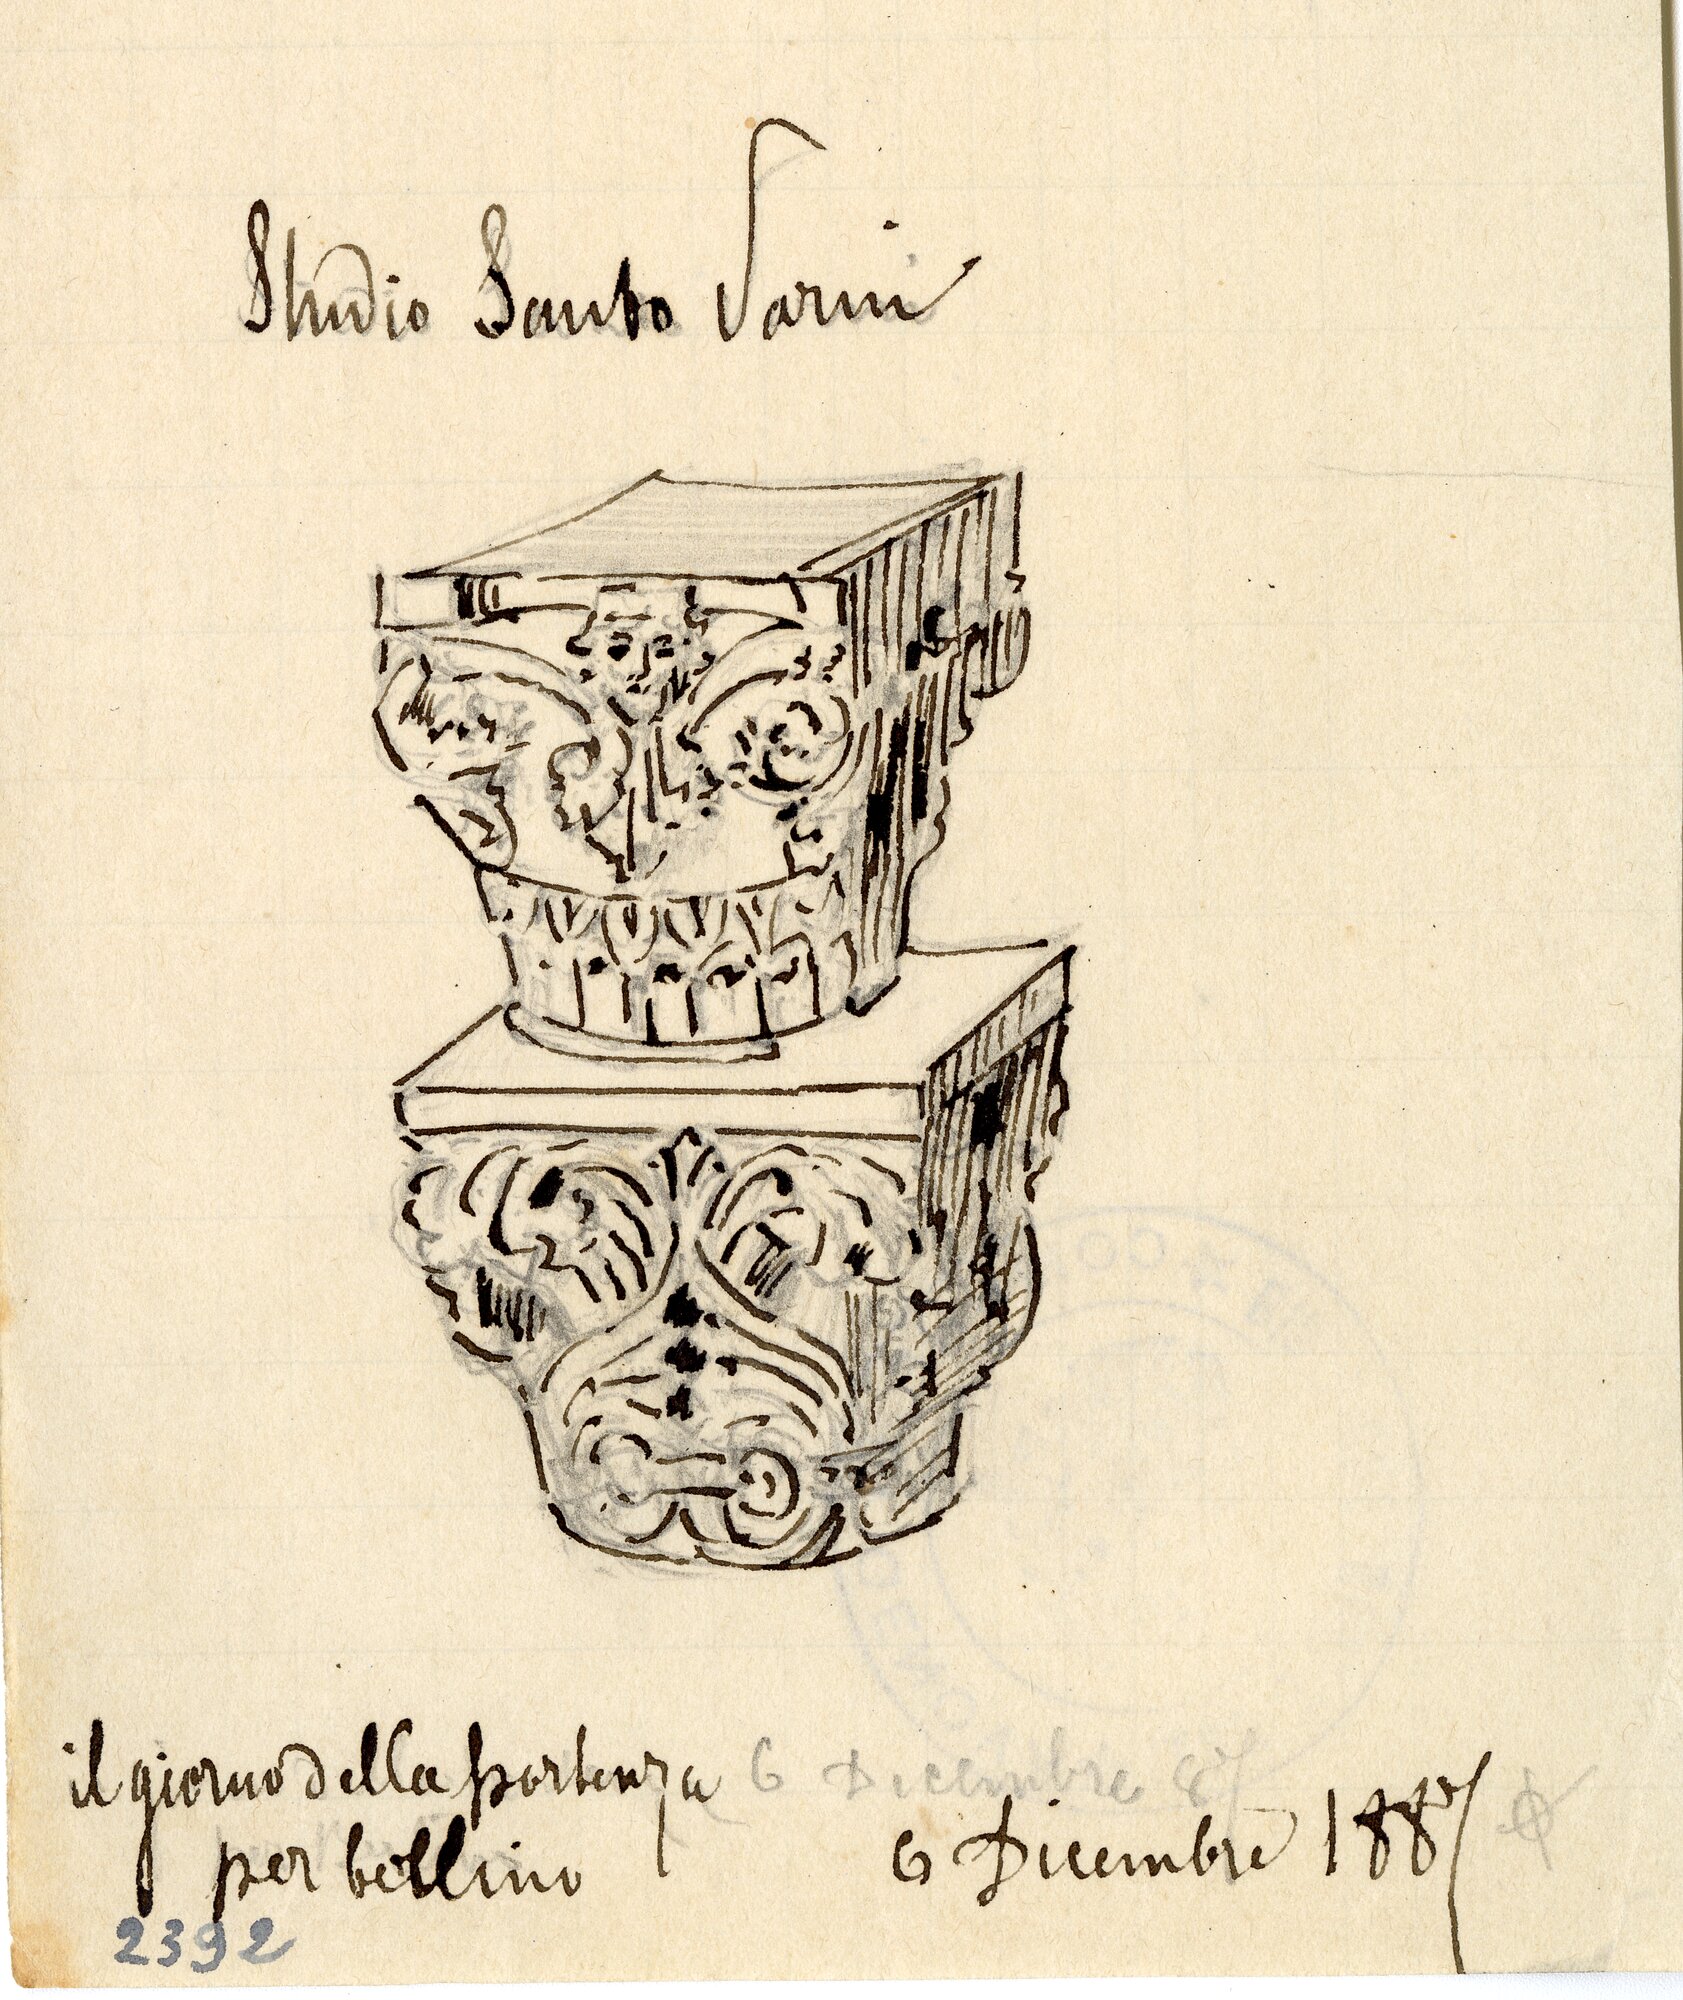 Studio Santo Varni
il giorno della partenza 6 Dicembre 87
per bellino 6 Dicembre 1887
2392